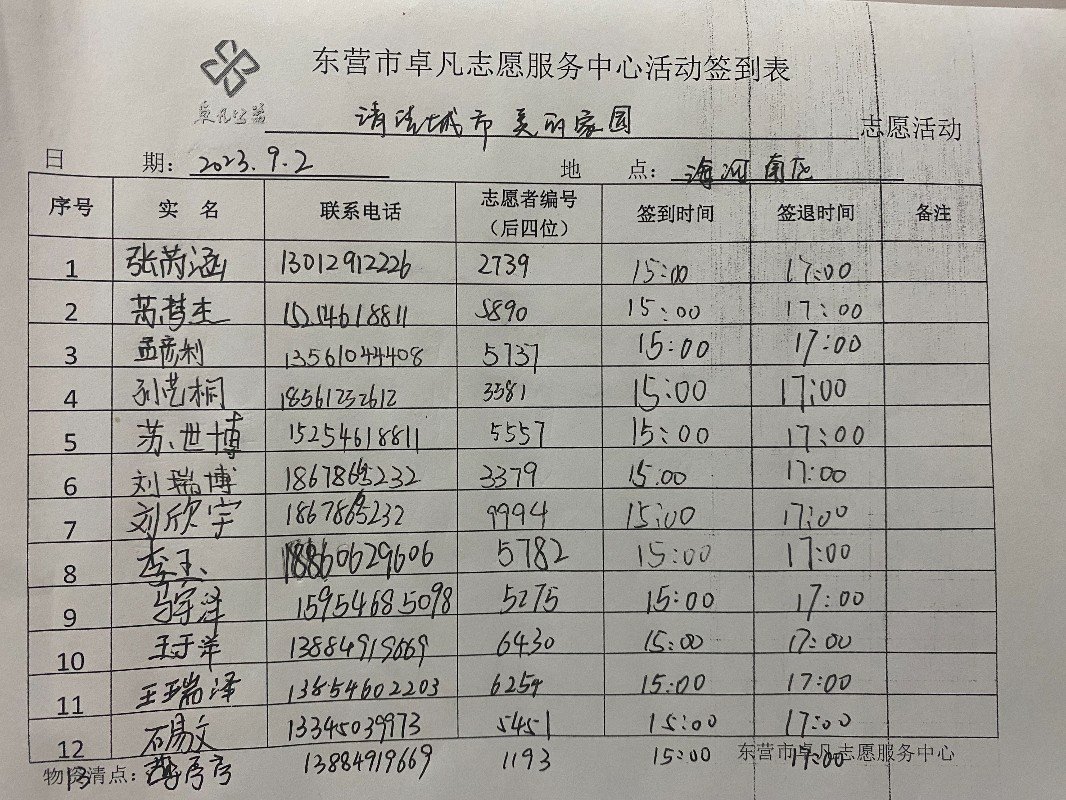 东营市卓凡志愿服务中心活动签到表
卓凡公益
清洁城市 美丽家园 志愿活动
日 期：2023.9.2 地 点：海河南
序号 实 名 联系电话 志愿者编号（后四位） 签到时间 签退时间 备注
1 张芮涵 13012912226 2739 15:00 17:00
2 15254618811 5890 15:00 17:00
3 孟彦利 13561044408 5737 15:00 17:00
4 孙艺桐 18561232612 3581 15:00 17:00
5 苏世博 15254618811 5557 15:00 17:00
6 刘瑞博 18678665232 3379 15:00 17:00
7 刘欣宇 18678665232 9994 15:00 17:00
8 李玉 18860629606 5782 15:00 17:00
9 马宇泽 15954685098 5275 15:00 17:00
10 王于洋 13884919669 6430 15:00 17:00
11 王瑞泽 13854602203 6254 15:00 17:00
12 石易文 13345039973 5451 15:00 17:00
13 13884919669 1193 15:00 17:00
物资清点： 东营市卓凡志愿服务中心